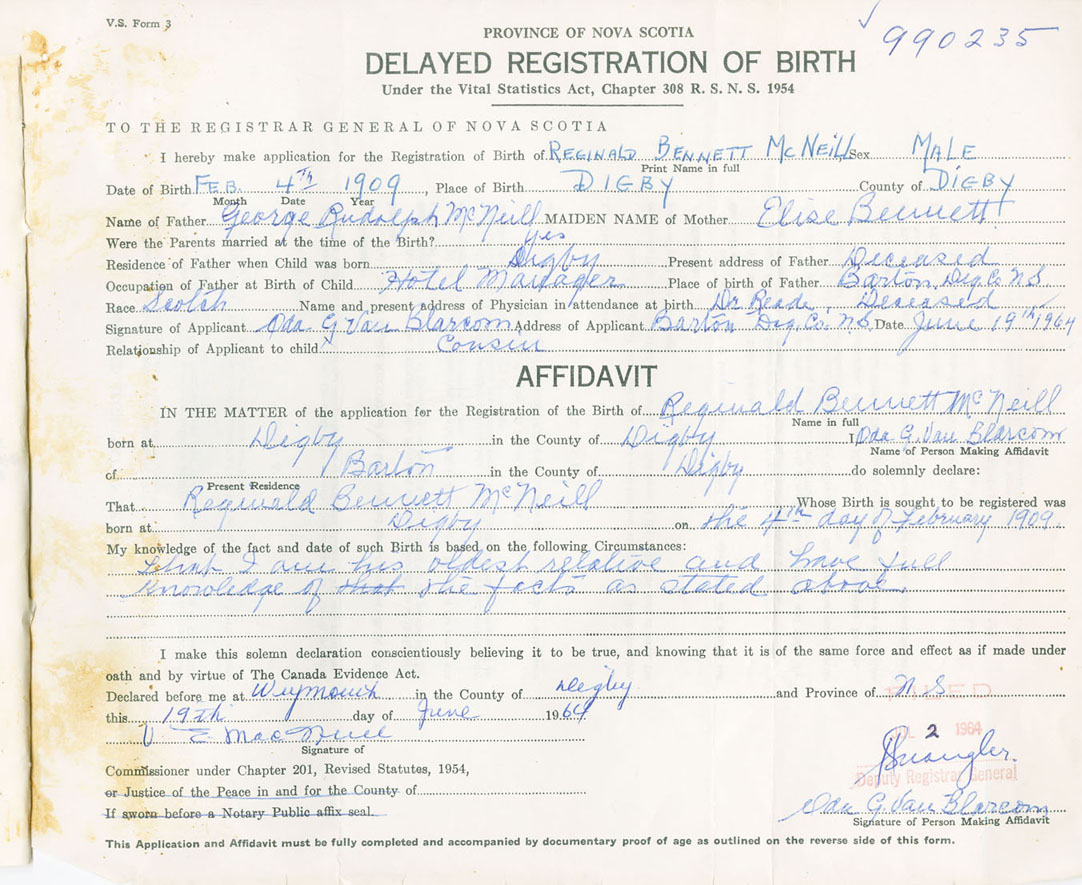 V.S. Form 3
990235
PROVINCE OF NOVA SCOTIA
DELAYED REGISTRATION OF BIRTH
Under the Vital Statistics Act, Chapter 308 R. S. N. S. 1954
TO THE REGISTRAR GENERAL OF NOVA SCOTIA
I hereby make application for the Registration of Birth of REGINALD BENNETT McNEILL Sex MALE
Print Name in full
Date of Birth FEB. 4TH 1909, Place of Birth DIGBY County of DIGBY
Month Date Year
Name of Father George Rudolph McNeill MAIDEN NAME of Mother Elise Bennett
Were the Parents married at the time of the Birth? Yes
Residence of Father when Child was born Digby Present address of Father Deceased
Occupation of Father at Birth of Child Hotel Manager Place of birth of Father Barton, Dig. Co N S
Race Scotch Name and present address of Physician in attendance at birth Dr. Reade, Deceased
Signature of Applicant Oda G Van Blarcom Address of Applicant Barton Dig. Co. N.S. Date June 19th 1964
Relationship of Applicant to child Cousin
AFFIDAVIT
IN THE MATTER of the application for the Registration of the Birth of Reginald Bennett McNeill
Name in full
born at Digby in the County of Digby I Oda G. Van Blarcom
Name of Person Making Affidavit
of Barton in the County of Digby do solemnly declare:
Present Residence
That Reginald Bennett McNeill Whose Birth is sought to be registered was
born at Digby on the 4th day of February 1909.
My knowledge of the fact and date of such Birth is based on the following Circumstances:
That I am his oldest relative and have full
knowledge of that the facts as stated above.
I make this solemn declaration conscientiously believing it to be true, and knowing that it is of the same force and effect as if made under
oath and by virtue of The Canada Evidence Act.
Declared before me at Weymouth in the County of Digby and Province of N.S
this 19th day of June 1964
V E MacNeill
Signature of
2 1964
Commissioner under Chapter 201, Revised Statutes, 1954,
Deputy Registrar General
or Justice of the Peace in and for the County of
Oda G. Van Blarcom
If sworn before a Notary Public affix seal.
Signature of Person Making Affidavit
This Application and Affidavit must be fully completed and accompanied by documentary proof of age as outlined on the reverse side of this form.